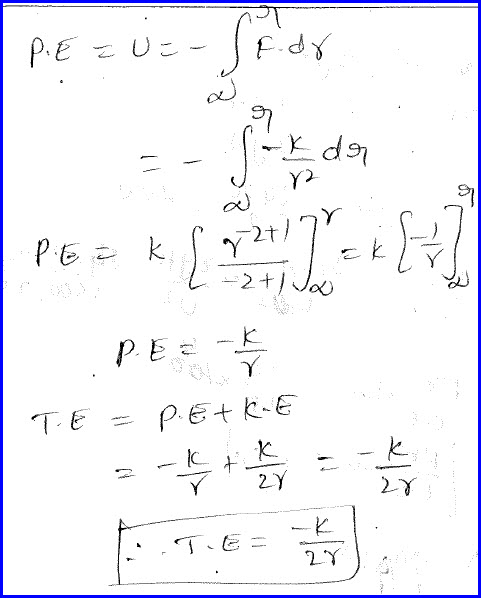 P.E = U = - ∫_∞^r F.dr
= - ∫_∞^r -k/r² dr
P.E = k [r^(-2+1)/(-2+1)]_∞^r = k [-1/r]_∞^r
P.E = -k/r
T.E = P.E + K.E
= -k/r + k/2r = -k/2r
∴ T.E = -k/2r